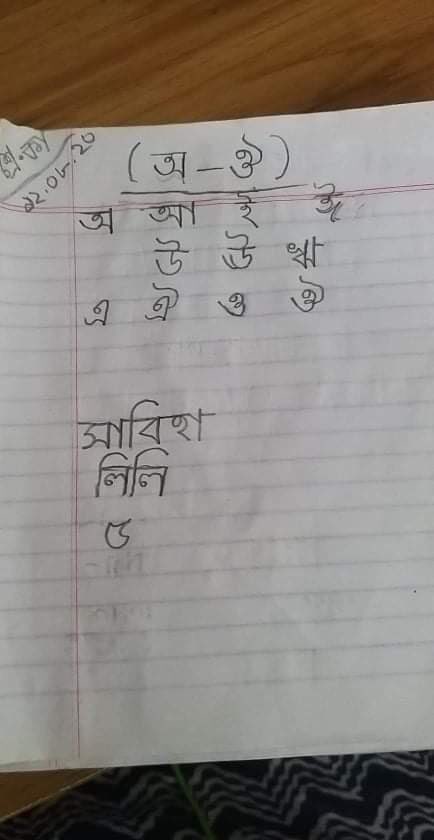 শ্রে.কা
১২.০৮.২০
(অ – ঔ)
অ আ ই ঈ
উ ঊ ঋ
এ ঐ ও ঔ
সাবিহা
লিলি
৫